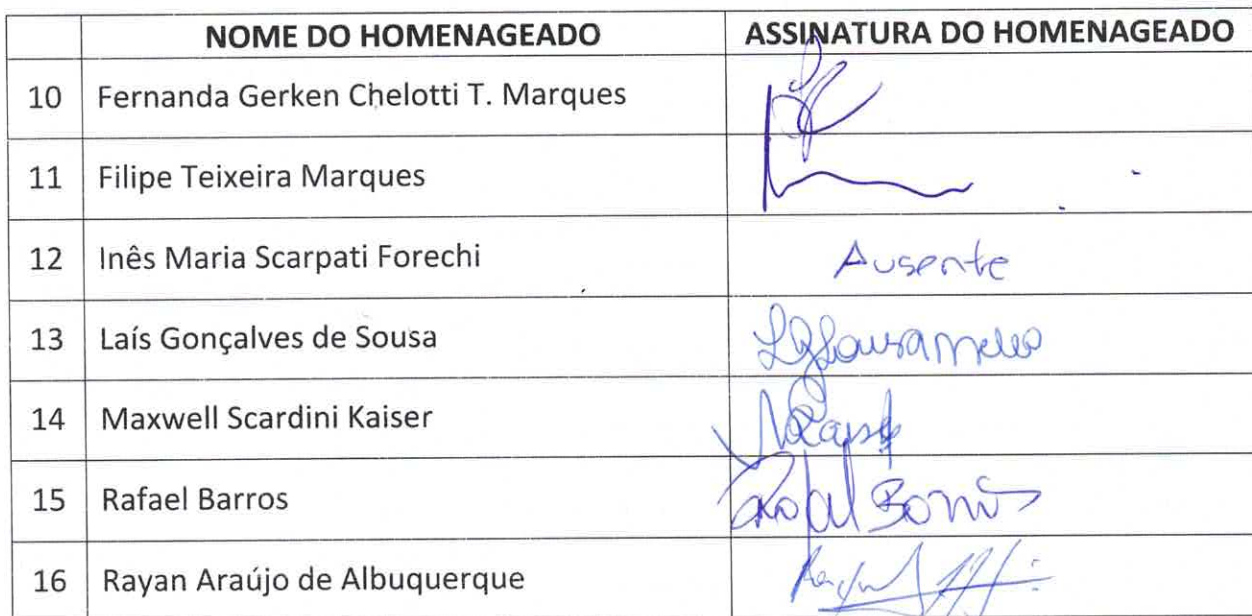 NOME DO HOMENAGEADO ASSINATURA DO HOMENAGEADO
10 Fernanda Gerken Chelotti T. Marques
11 Filipe Teixeira Marques
12 Inês Maria Scarpati Forechi Ausente
13 Laís Gonçalves de Sousa
14 Maxwell Scardini Kaiser
15 Rafael Barros Rafael Barros
16 Rayan Araújo de Albuquerque